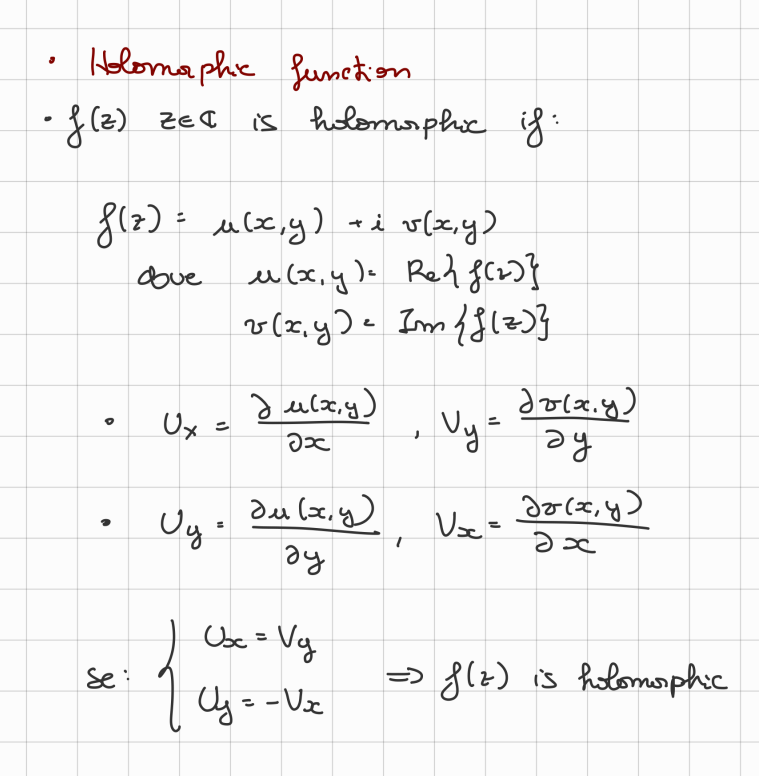 • Holomorphic function
• f(z) z∈ℂ is holomorphic if:
f(z) = u(x,y) + i v(x,y)
dove u(x,y) = Re{f(z)}
v(x,y) = Im{f(z)}
• Ux = ∂u(x,y)/∂x , Vy = ∂v(x,y)/∂y
• Uy = ∂u(x,y)/∂y , Vx = ∂v(x,y)/∂x
se: { Ux = Vy
Uy = -Vx ⇒ f(z) is holomorphic